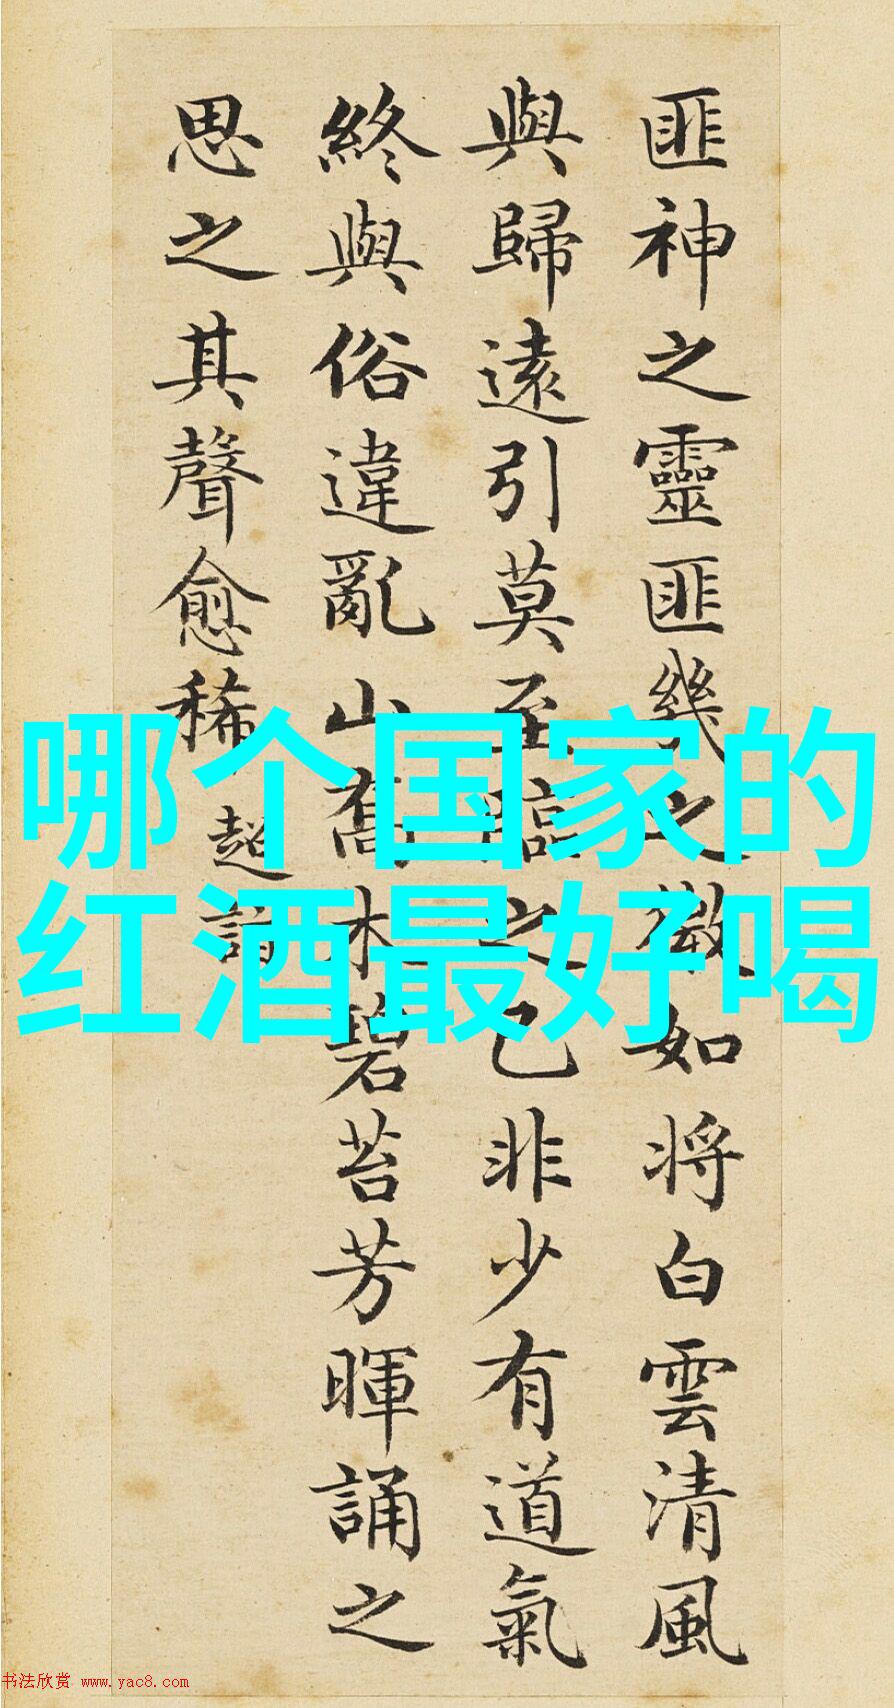 匪神之靈匪幾之微如将白雲清風
與歸遠引莫至臨之已非少有道氣
終與俗違亂山喬木碧苔芳暉誦之
思之其聲愈稀
超詣
哪个国家的
红酒最好喝
书法欣赏 www.yac8.com